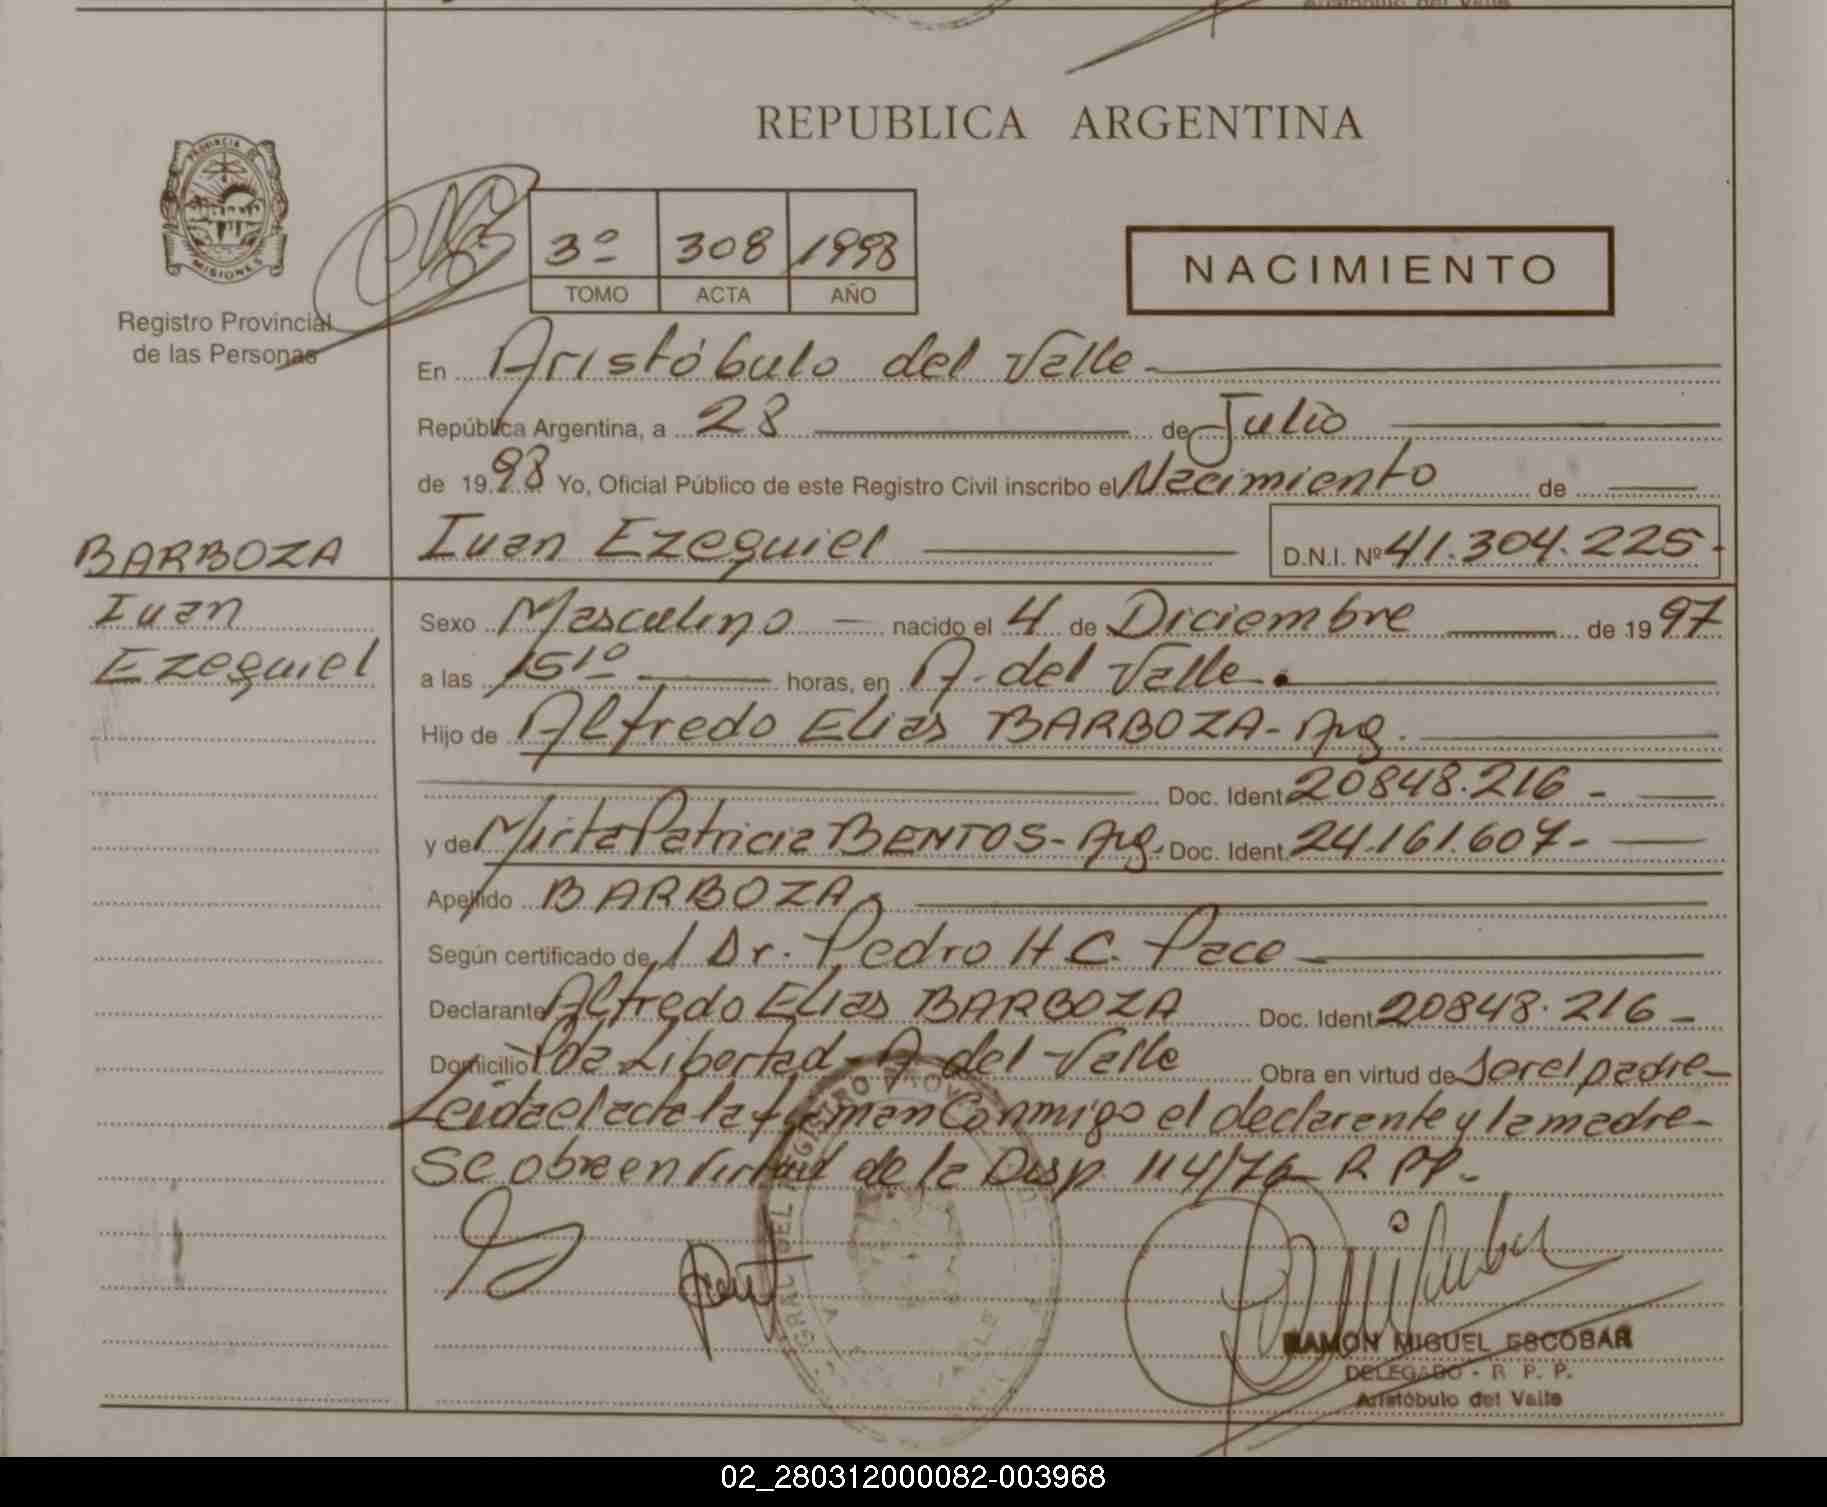 REPUBLICA ARGENTINA
PROVINCIA DE
MISIONES
Registro Provincial
de las Personas
3º 308 1998
TOMO ACTA AÑO
NACIMIENTO
En Aristóbulo del Valle
República Argentina, a 28 de Julio
de 1998 Yo, Oficial Público de este Registro Civil inscribo el Nacimiento de
BARBOZA
Iuan Ezequiel D.N.I. Nº 41.304.225.
Iuan
Ezequiel
Sexo Masculino nacido el 4 de Diciembre de 1997
a las 15 10 horas, en A. del Valle.
Hijo de Alfredo Elias BARBOZA - Arg.
Doc. Ident. 20848.216 -
y de Mirta Patricia BENTOS - Arg. Doc. Ident. 24.161.607 -
Apellido BARBOZA
Según certificado del Dr. Pedro H. C. Pace
Declarante Alfredo Elias BARBOZA Doc. Ident. 20848.216 -
Domicilio Pda Libertad - A del Valle Obra en virtud de ser el padre -
Leida el acta la firman conmigo el declarante y la madre -
Se obra en virtud de la Disp. 114/76 - R PP -
RAMON MIGUEL ESCOBAR
DELEGADO - R. P. P.
Aristóbulo del Valle
02_280312000082-003968